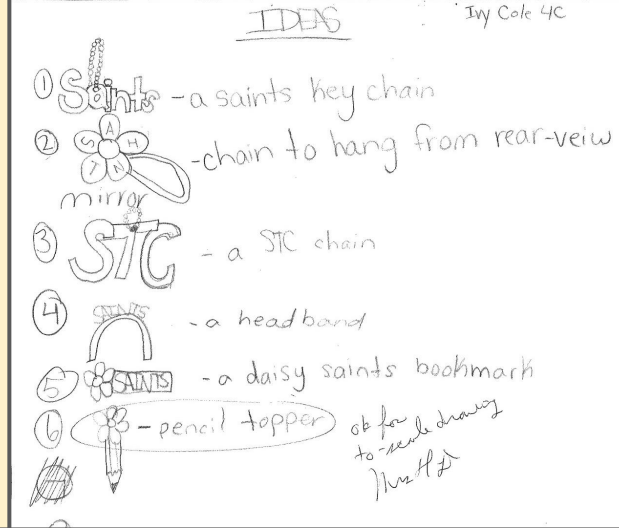 IDEAS
Ivy Cole 4C
① Saints - a saints key chain
② S A H N T - chain to hang from rear-veiw
mirror
③ STC - a STC chain
④ SAINTS - a headband
⑤ SAINTS - a daisy saints bookmark
⑥ - pencil topper
ok for
to-scale drawing